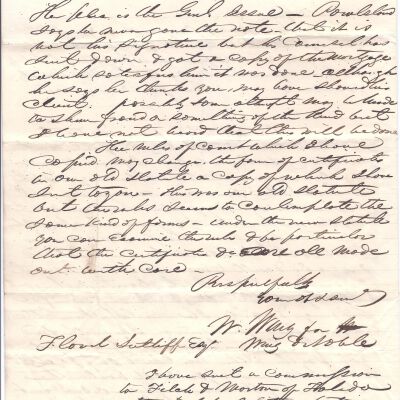 He also is the Genl Issue — Rowland
says he never gave the note that it is
not his signature but his Counsel has
sent down & got a copy of the Mortgage
which satisfies him it was done although
he says he thinks you may have showed this
Client. possibly some attempt may be made
to show fraud or something of the kind but
I have not heard that this will be done
The rules of Court which I have
copied may change the form of certificate
in our old State a copy of which I have
sent to you — this was our old Statute
but the rules seems to contemplate the
same kind of forms — under the new statute
you can examine the rule & be particular
that the certificate & are all made
out with care —
Respectfully
Your obt Servt
W. Waig for
Waig & Noble
Floid Sutliff Esq
I have sent a commission
to Filch & Morton of Toledo